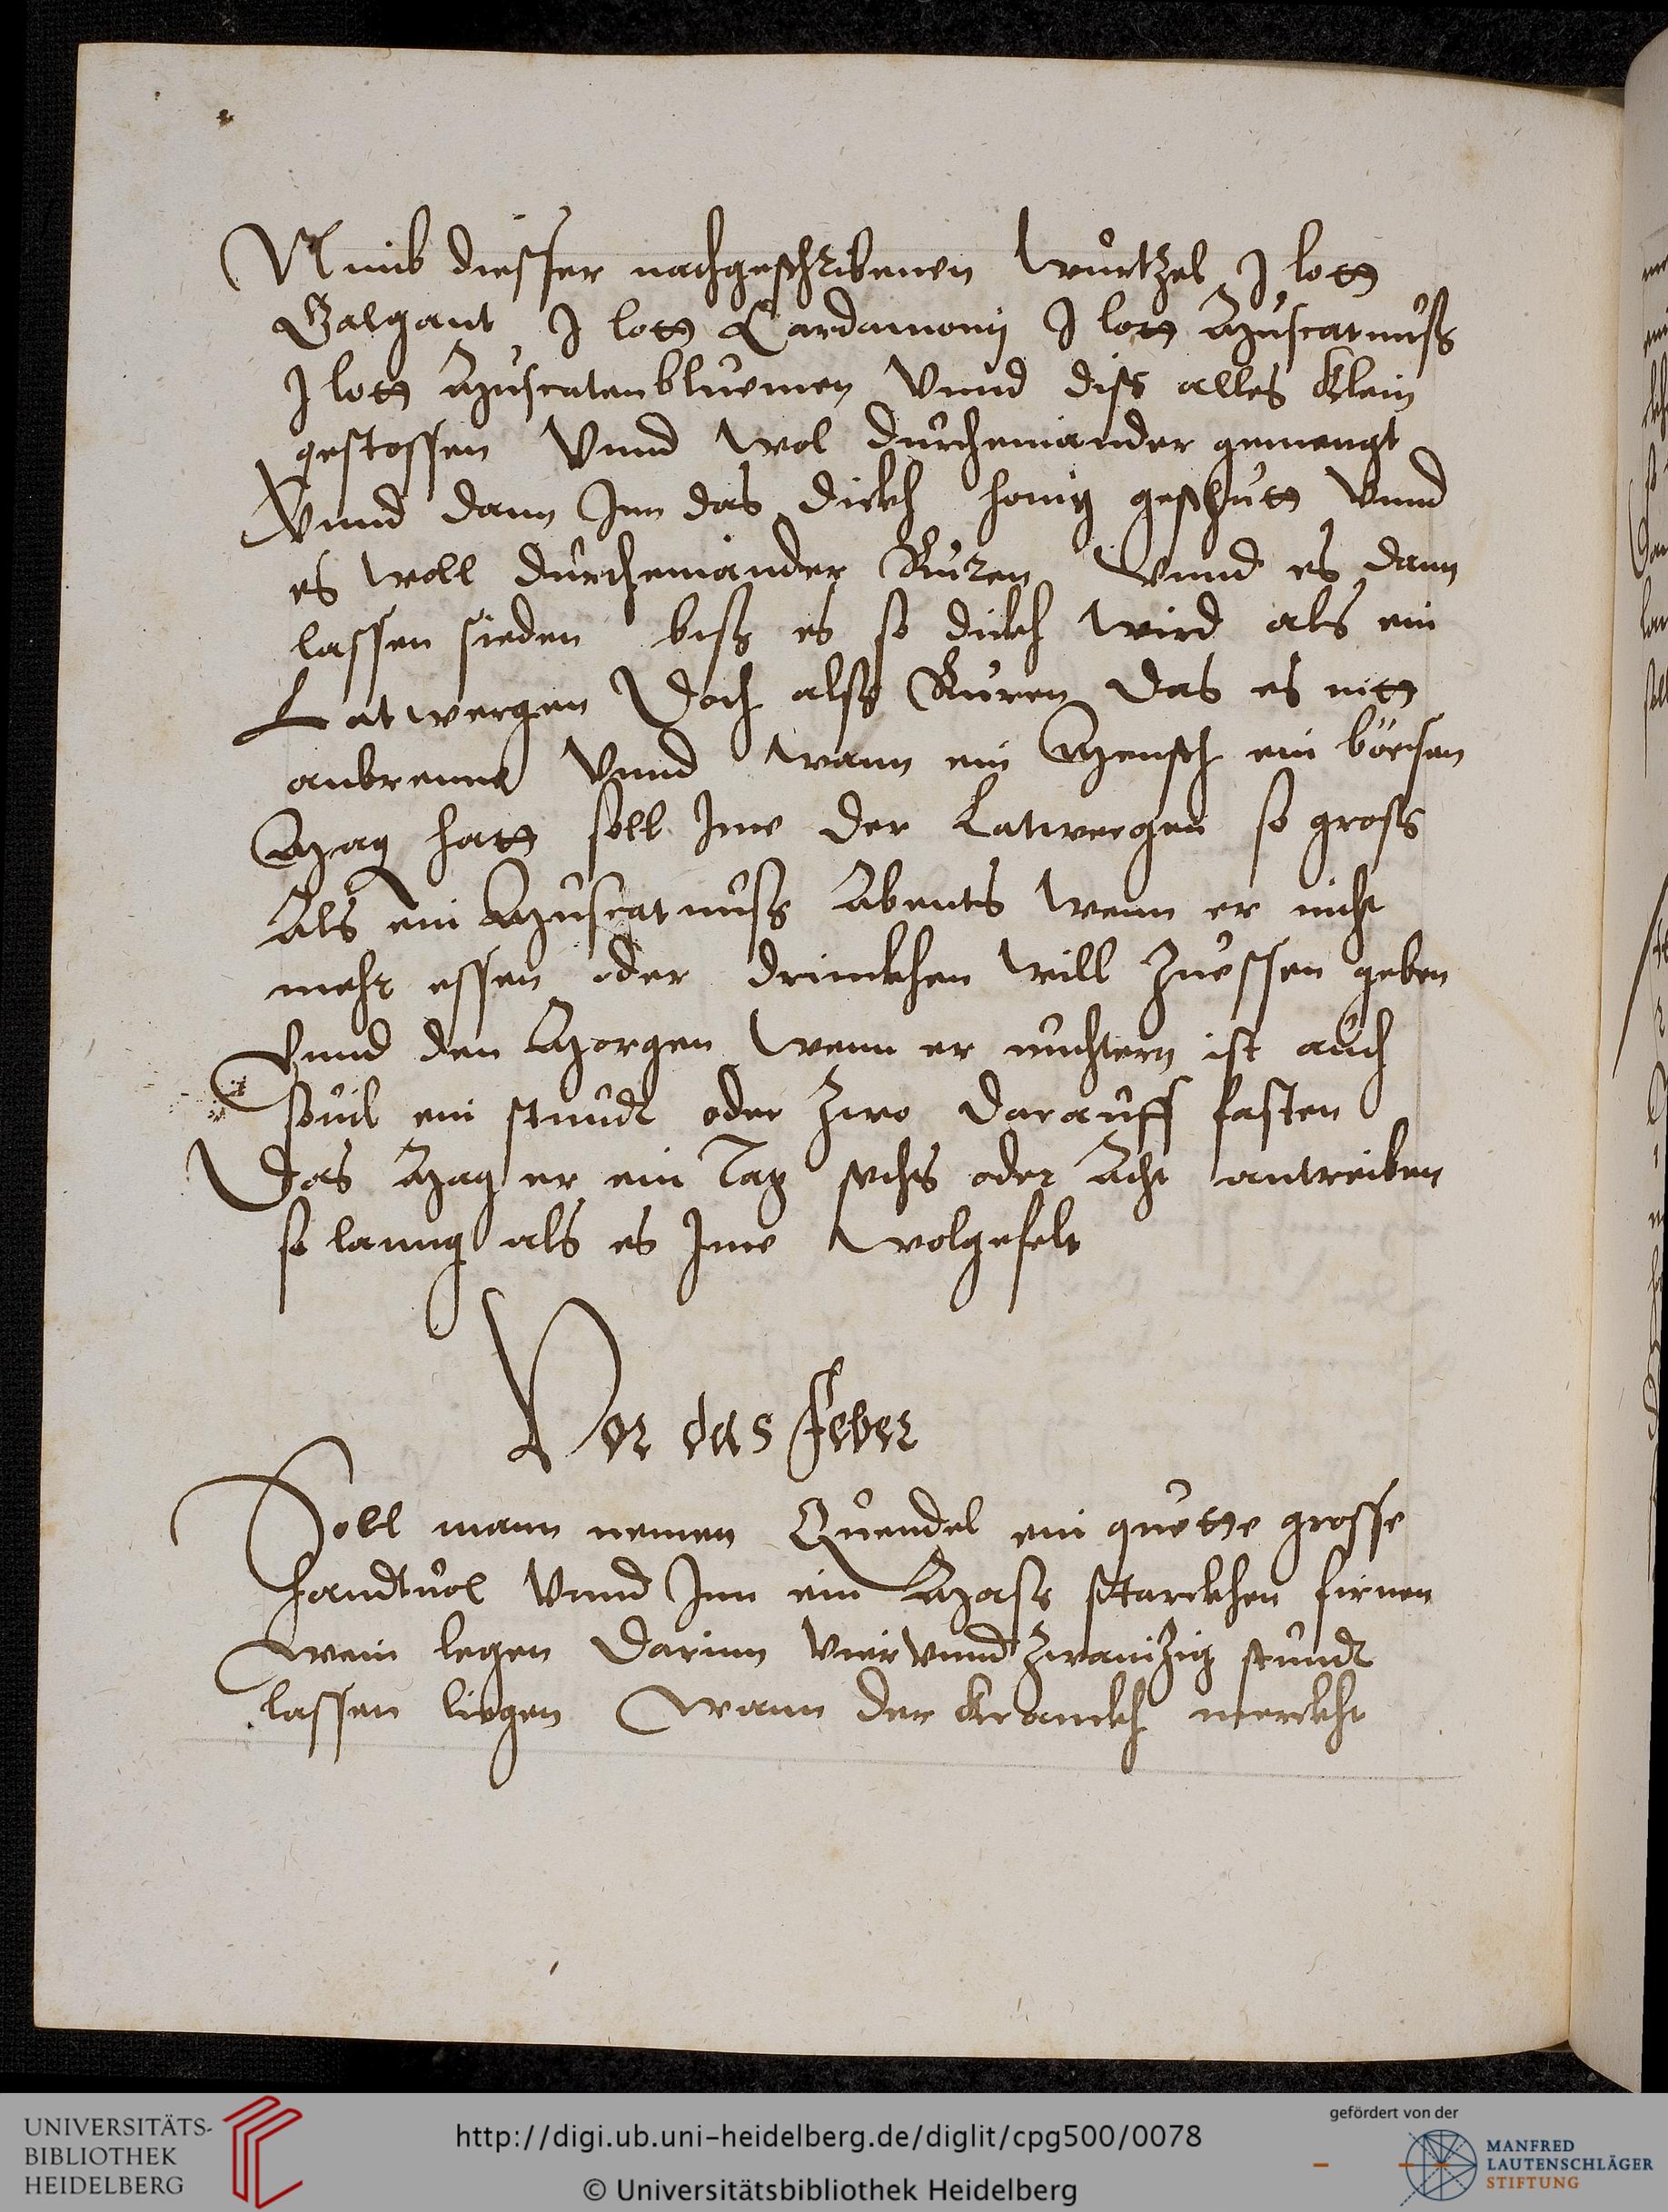 Nimb diesser nachgeschribenen wurtzel j lott
Galgant j lott Cardamomj j lott Muscatnuß
j lott Muscatenbluemen Vnnd diß alles klein
gestossen Vnnd wol durcheinander gemengt
Vnnd dann Jnn das dickh honig geschutt Vnnd
es woll durcheinander Ruren Vnnd es dann
lassen sieden biß es so dickh wird als ein
Latwergen Doch alß Ruren das es nitt
anbrenne Vnnd wann ein Mensch ein bösen
Mag hatt soll Jme der Latwergen so groß
Als ein Muscatnuß Abents wenn er nicht
mehr essen oder drinckhen will Zuessen geben
Vnnd den Morgen wenn er nuchtern ist auch
souil ein stundt oder Zwo darauff fasten
Das Mag er ein Tag sechs oder Acht antreiben
so lanng als es Jme wolgefelt
Vor das Feber
Soll mann nemen Quendel ein guette grosse
handtuol Vnnd Jnn ein Mass starckhen firnen
wein legen darinn vier vnnd Zwanizig stundt
lassen liegen wann der Kranckh merckht
UNIVERSITÄTS-
BIBLIOTHEK
HEIDELBERG
http://digi.ub.uni-heidelberg.de/diglit/cpg500/0078
© Universitätsbibliothek Heidelberg
gefördert von der
MANFRED
LAUTENSCHLÄGER
STIFTUNG